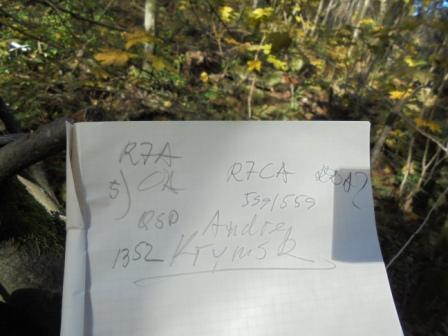 R7A
5) OK R7CA
559/559
QSO Andrej
1352 Krymsk